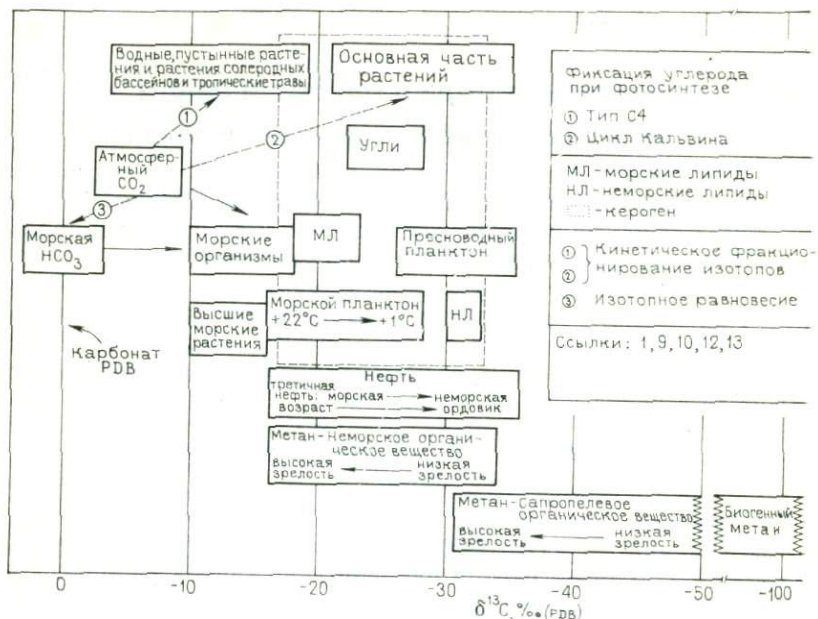 Водные, пустынные расте-
ния и растения солеродных
бассейнов и тропические травы
Основная часть
растений
①
②
Угли
Атмосфер-
ный
CO₂
③
Морская
HCO₃
Морские
организмы
МЛ
Пресноводный
планктон
Высшие
морские
растения
Морской планктон
+22°C → +1°C
НЛ
Карбонат
PDB
Нефть
третичная
нефть: морская → неморская
возраст → ордовик
Метан-неморское органи-
ческое вещество
высокая ← низкая
зрелость зрелость
Метан-Сапропелевое
органическое вещество
высокая ← низкая
зрелость зрелость
Биогенный
метан
Фиксация углерода
при фотосинтезе
① Тип C4
② Цикл Кальвина
МЛ-морские липиды
НЛ-неморские липиды
-кероген
① Кинетическое фракцио-
② нирование изотопов
③ Изотопное равновесие
Ссылки: 1, 9, 10, 12, 13
0 -10 -20 -30 -40 -50 -100
δ¹³C, ‰ (PDB)